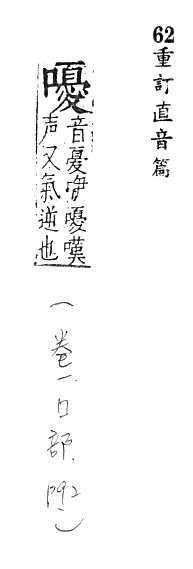 62重訂直音篇
嚘
音憂咿嚘嘆
声又氣逆也
(卷一.口部.